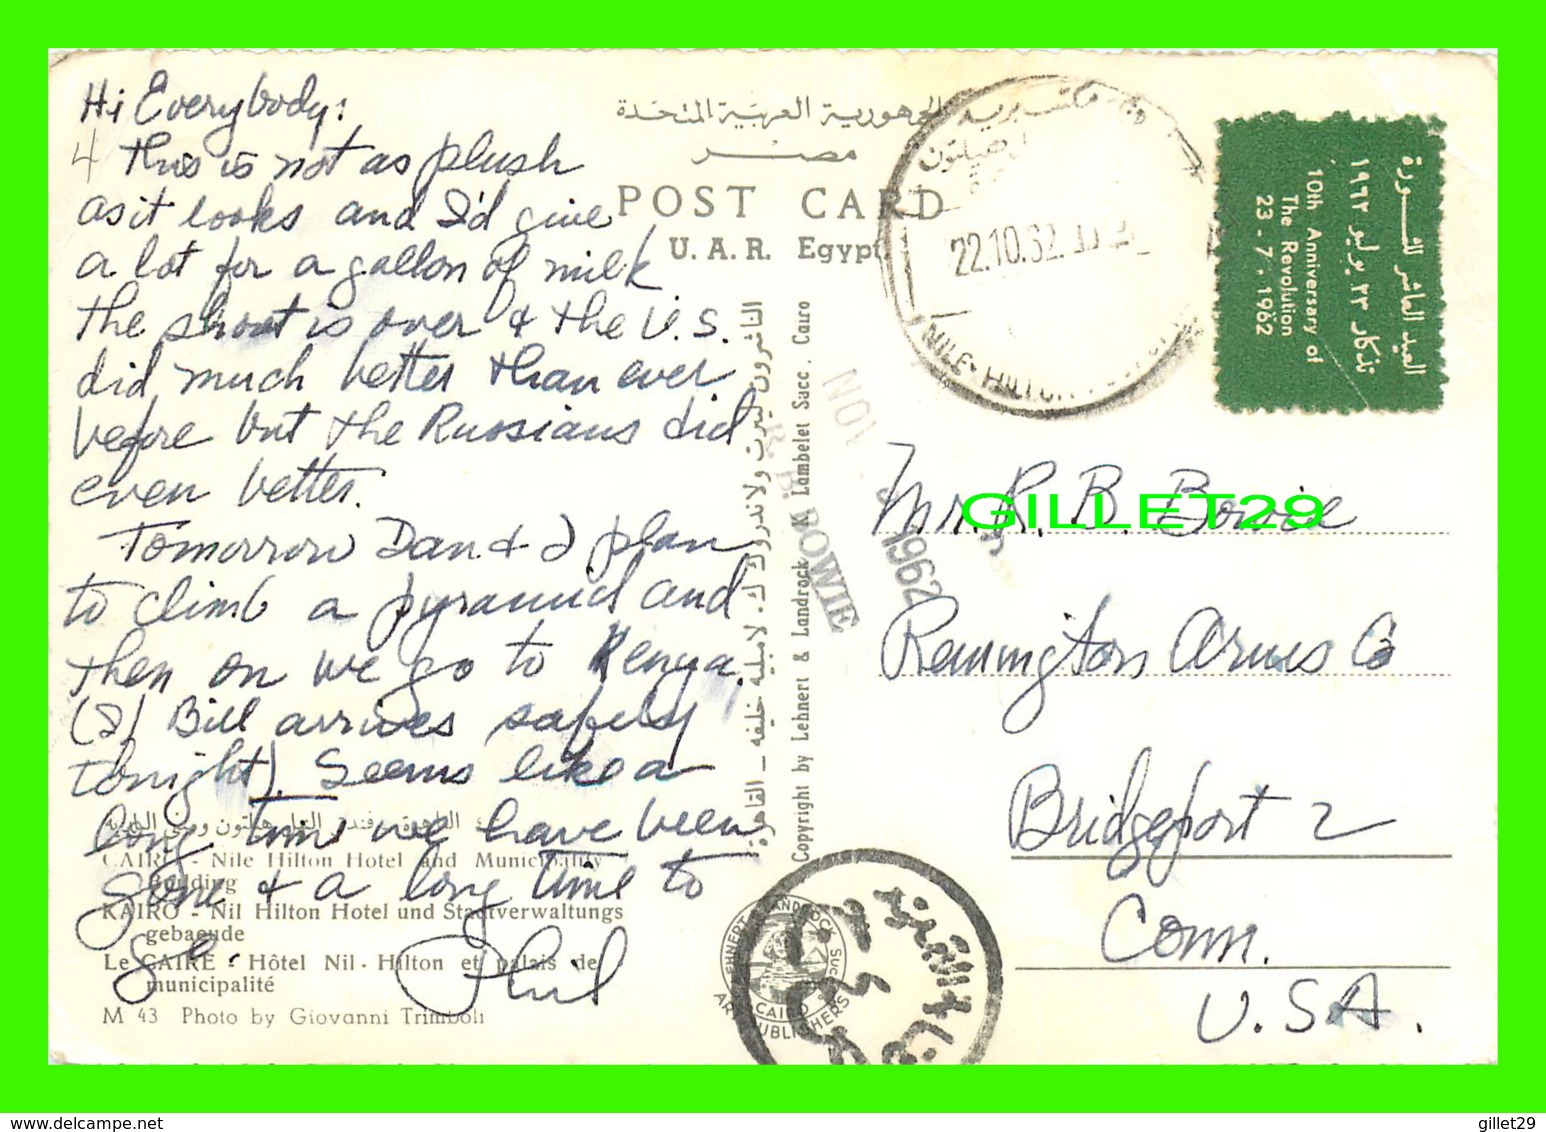 Hi Everybody:
This is not as plush
as it looks and I'd give
a lot for a gallon of milk
The shoot is over & the U.S.
did much better than ever
before but the Russians did
even better.
Tomorrow Dan & I plan
to climb a pyramid and
then on we go to Kenya.
(If Bill arrives safely
tonight). Seems like a
long time we have been
gone & a long time to
go.
Phil
الجمهورية العربية المتحدة
مصر
POST CARD
U. A. R. Egypt
22.10.62
NILE-HILTON
العيد العاشر للثورة
تذكار ٢٣ يوليو ١٩٦٢
10th Anniversary of
The Revolution
23 - 7 - 1962
الناشرون ليرت ولاندروك ك. لامبليه خليفه - القاهرة
Copyright by Lehnert & Landrock K. Lambelet Succ. Cairo
NOV 1962
R. B. BOWIE
Mr. R. B. Bowie
GILLET29
Remington Arms Co
Bridgeport 2
Conn.
U.S.A.
CAIRO - Nile Hilton Hotel and Municipality
Building
KAIRO - Nil Hilton Hotel und Stadtverwaltungs
gebaeude
Le CAIRE - Hôtel Nil - Hilton et palais de
municipalité
M 43 Photo by Giovanni Trimboli
LEHNERT & LANDROCK Succ.
CAIRO
ART PUBLISHERS
gillet29